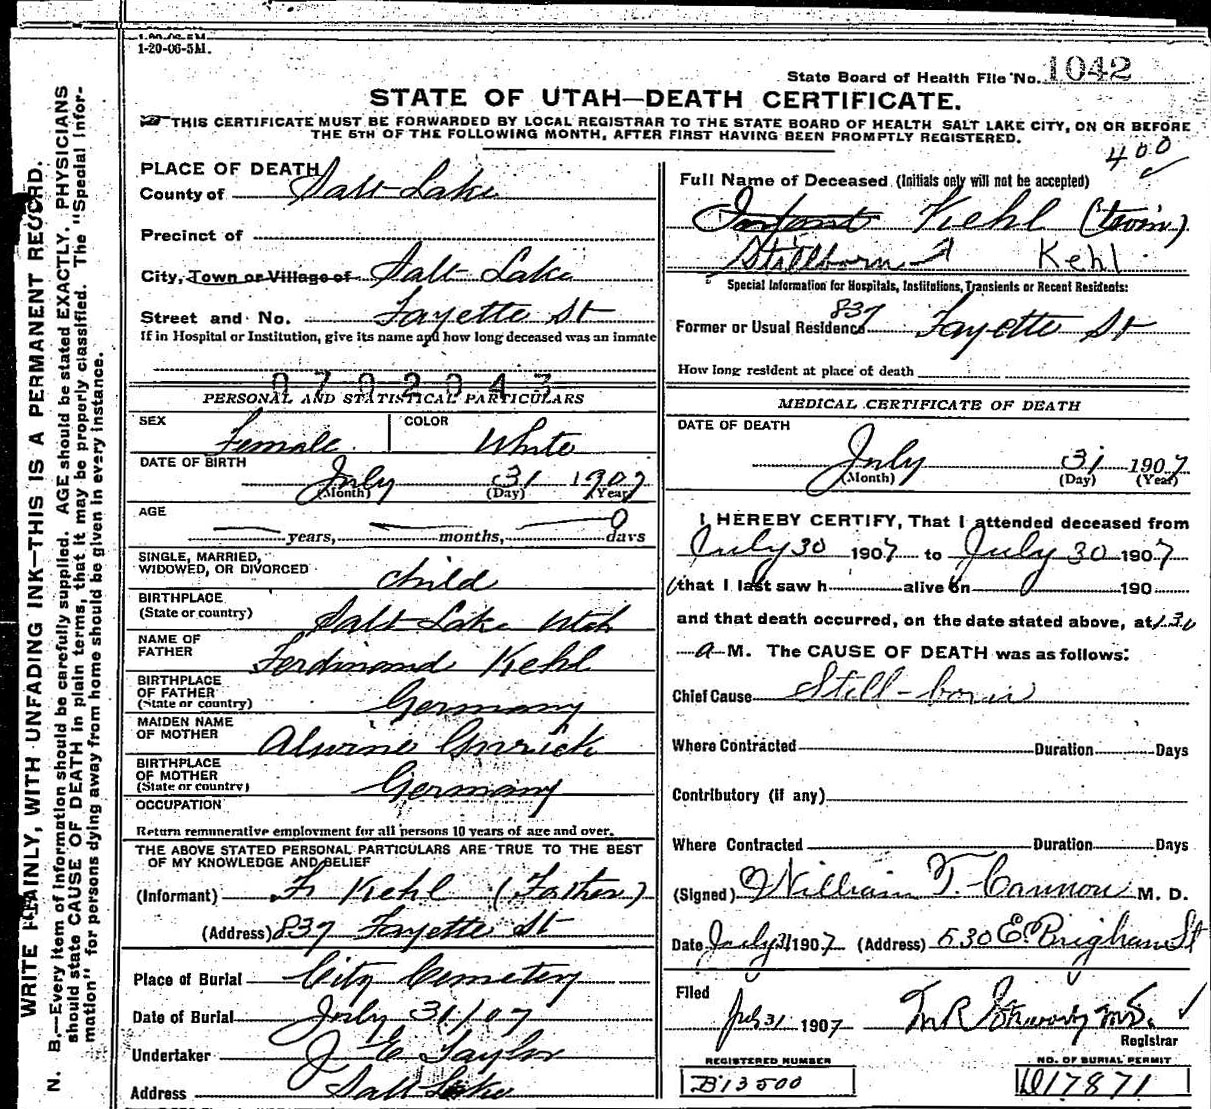 1-20-06-5M.
1-20-06-5M.
State Board of Health File No. 1042
STATE OF UTAH—DEATH CERTIFICATE.
THIS CERTIFICATE MUST BE FORWARDED BY LOCAL REGISTRAR TO THE STATE BOARD OF HEALTH SALT LAKE CITY, ON OR BEFORE
THE 5TH OF THE FOLLOWING MONTH, AFTER FIRST HAVING BEEN PROMPTLY REGISTERED.
400
WRITE PLAINLY, WITH UNFADING INK—THIS IS A PERMANENT RECORD.
N. B.—Every item of information should be carefully supplied. AGE should be stated EXACTLY. PHYSICIANS
should state CAUSE OF DEATH in plain terms, that it may be properly classified. The "Special Infor-
mation" for persons dying away from home should be given in every instance.
PLACE OF DEATH
County of Salt Lake
Precinct of
City, Town or Village of Salt Lake
Street and No. Fayette St
If in Hospital or Institution, give its name and how long deceased was an inmate
0702043
PERSONAL AND STATISTICAL PARTICULARS
SEX Female COLOR White
DATE OF BIRTH July 31 1907
(Month) (Day) (Year)
AGE
years, months, 0 days
SINGLE, MARRIED,
WIDOWED, OR DIVORCED child
BIRTHPLACE
(State or country) Salt Lake Utah
NAME OF
FATHER Ferdinand Kehl
BIRTHPLACE
OF FATHER
(State or country) Germany
MAIDEN NAME
OF MOTHER Alwine
BIRTHPLACE
OF MOTHER
(State or country) Germany
OCCUPATION
Return remunerative employment for all persons 10 years of age and over.
THE ABOVE STATED PERSONAL PARTICULARS ARE TRUE TO THE BEST
OF MY KNOWLEDGE AND BELIEF
(Informant) Fr Kehl (Father)
(Address) 837 Fayette St
Place of Burial City Cemetery
Date of Burial July 31/07
Undertaker J E Taylor
Address Salt Lake
Full Name of Deceased (Initials only will not be accepted)
Infant Kehl (twin)
Stillborn Kehl
Special Information for Hospitals, Institutions, Transients or Recent Residents:
837
Former or Usual Residence Fayette St
How long resident at place of death
MEDICAL CERTIFICATE OF DEATH
DATE OF DEATH
July 31 1907
(Month) (Day) (Year)
I HEREBY CERTIFY, That I attended deceased from
July 30 1907 to July 30 1907
that I last saw h alive on 190
and that death occurred, on the date stated above, at 1.30
a M. The CAUSE OF DEATH was as follows:
Chief Cause Still-born
Where Contracted Duration Days
Contributory (if any)
Where Contracted Duration Days
(Signed) William T. Cannon M. D.
Date July 31 1907 (Address) 530 E Brigham St
Filed
July 31 1907
Registrar
REGISTERED NUMBER
B13500
NO. OF BURIAL PERMIT
D17871